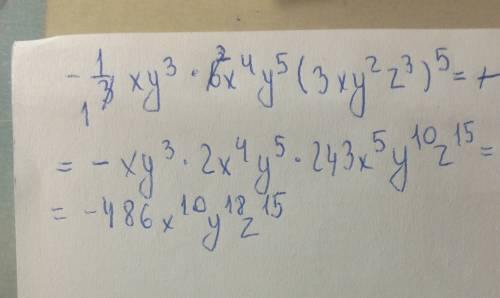 - 1/3 xy³ · 6x⁴y⁵(3xy²z³)⁵ =
= -xy³ · 2x⁴y⁵ · 243x⁵y¹⁰z¹⁵ =
= -486x¹⁰y¹⁸z¹⁵